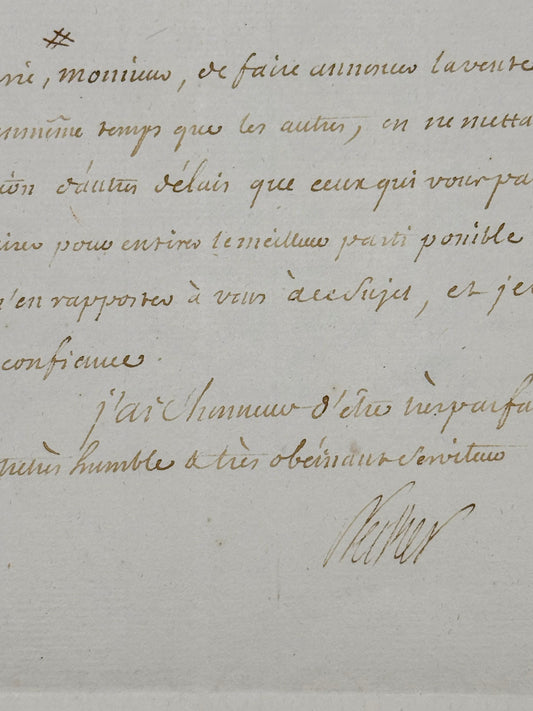 #
rié, monsieur, de faire annoncer la vente
en même temps que les autres, en ne metta
ion d'autres délais que ceux qui vous pa
ires pour en tirer le meilleur parti possible
m'en rapporter à vous à ce sujet, et j'e
confiance.
j'ai l'honneur d'être très parfa
très humble & très obéissant serviteur
Necker